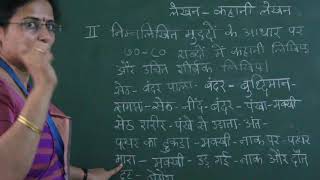 लेखन - कहानी लेखन
II निम्नलिखित मुद्दों के आधार पर
७०-८० शब्दों में कहानी लिखिए
और उचित शीर्षक लिखिए।
सेठ - बंदर पाला - बंदर - बुद्धिमान -
सेठ - नींद - बंदर - पंखा - मक्खी
सेठ शरीर - पंखे से उड़ाता - अंत -
पत्थर का टुकड़ा - मक्खी - नाक पर - पत्थर
मारा - मक्खी - उड़ गई - नाक और दाँत
टूट -